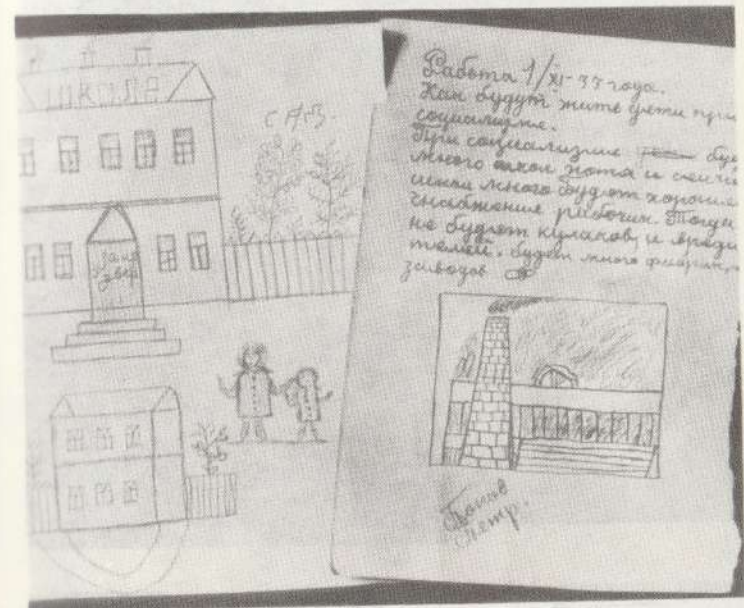 школе
САД.
Работа 1/XI-33 года.
Как будут жить дети при
социализме.
При социализме буд
много школ хотя и сейчас
школ много будет хорошее
снабжение рабочим. Тогда
не будет кулаков, и вреди
телей. будет много фабрик,
заводов
Петр.